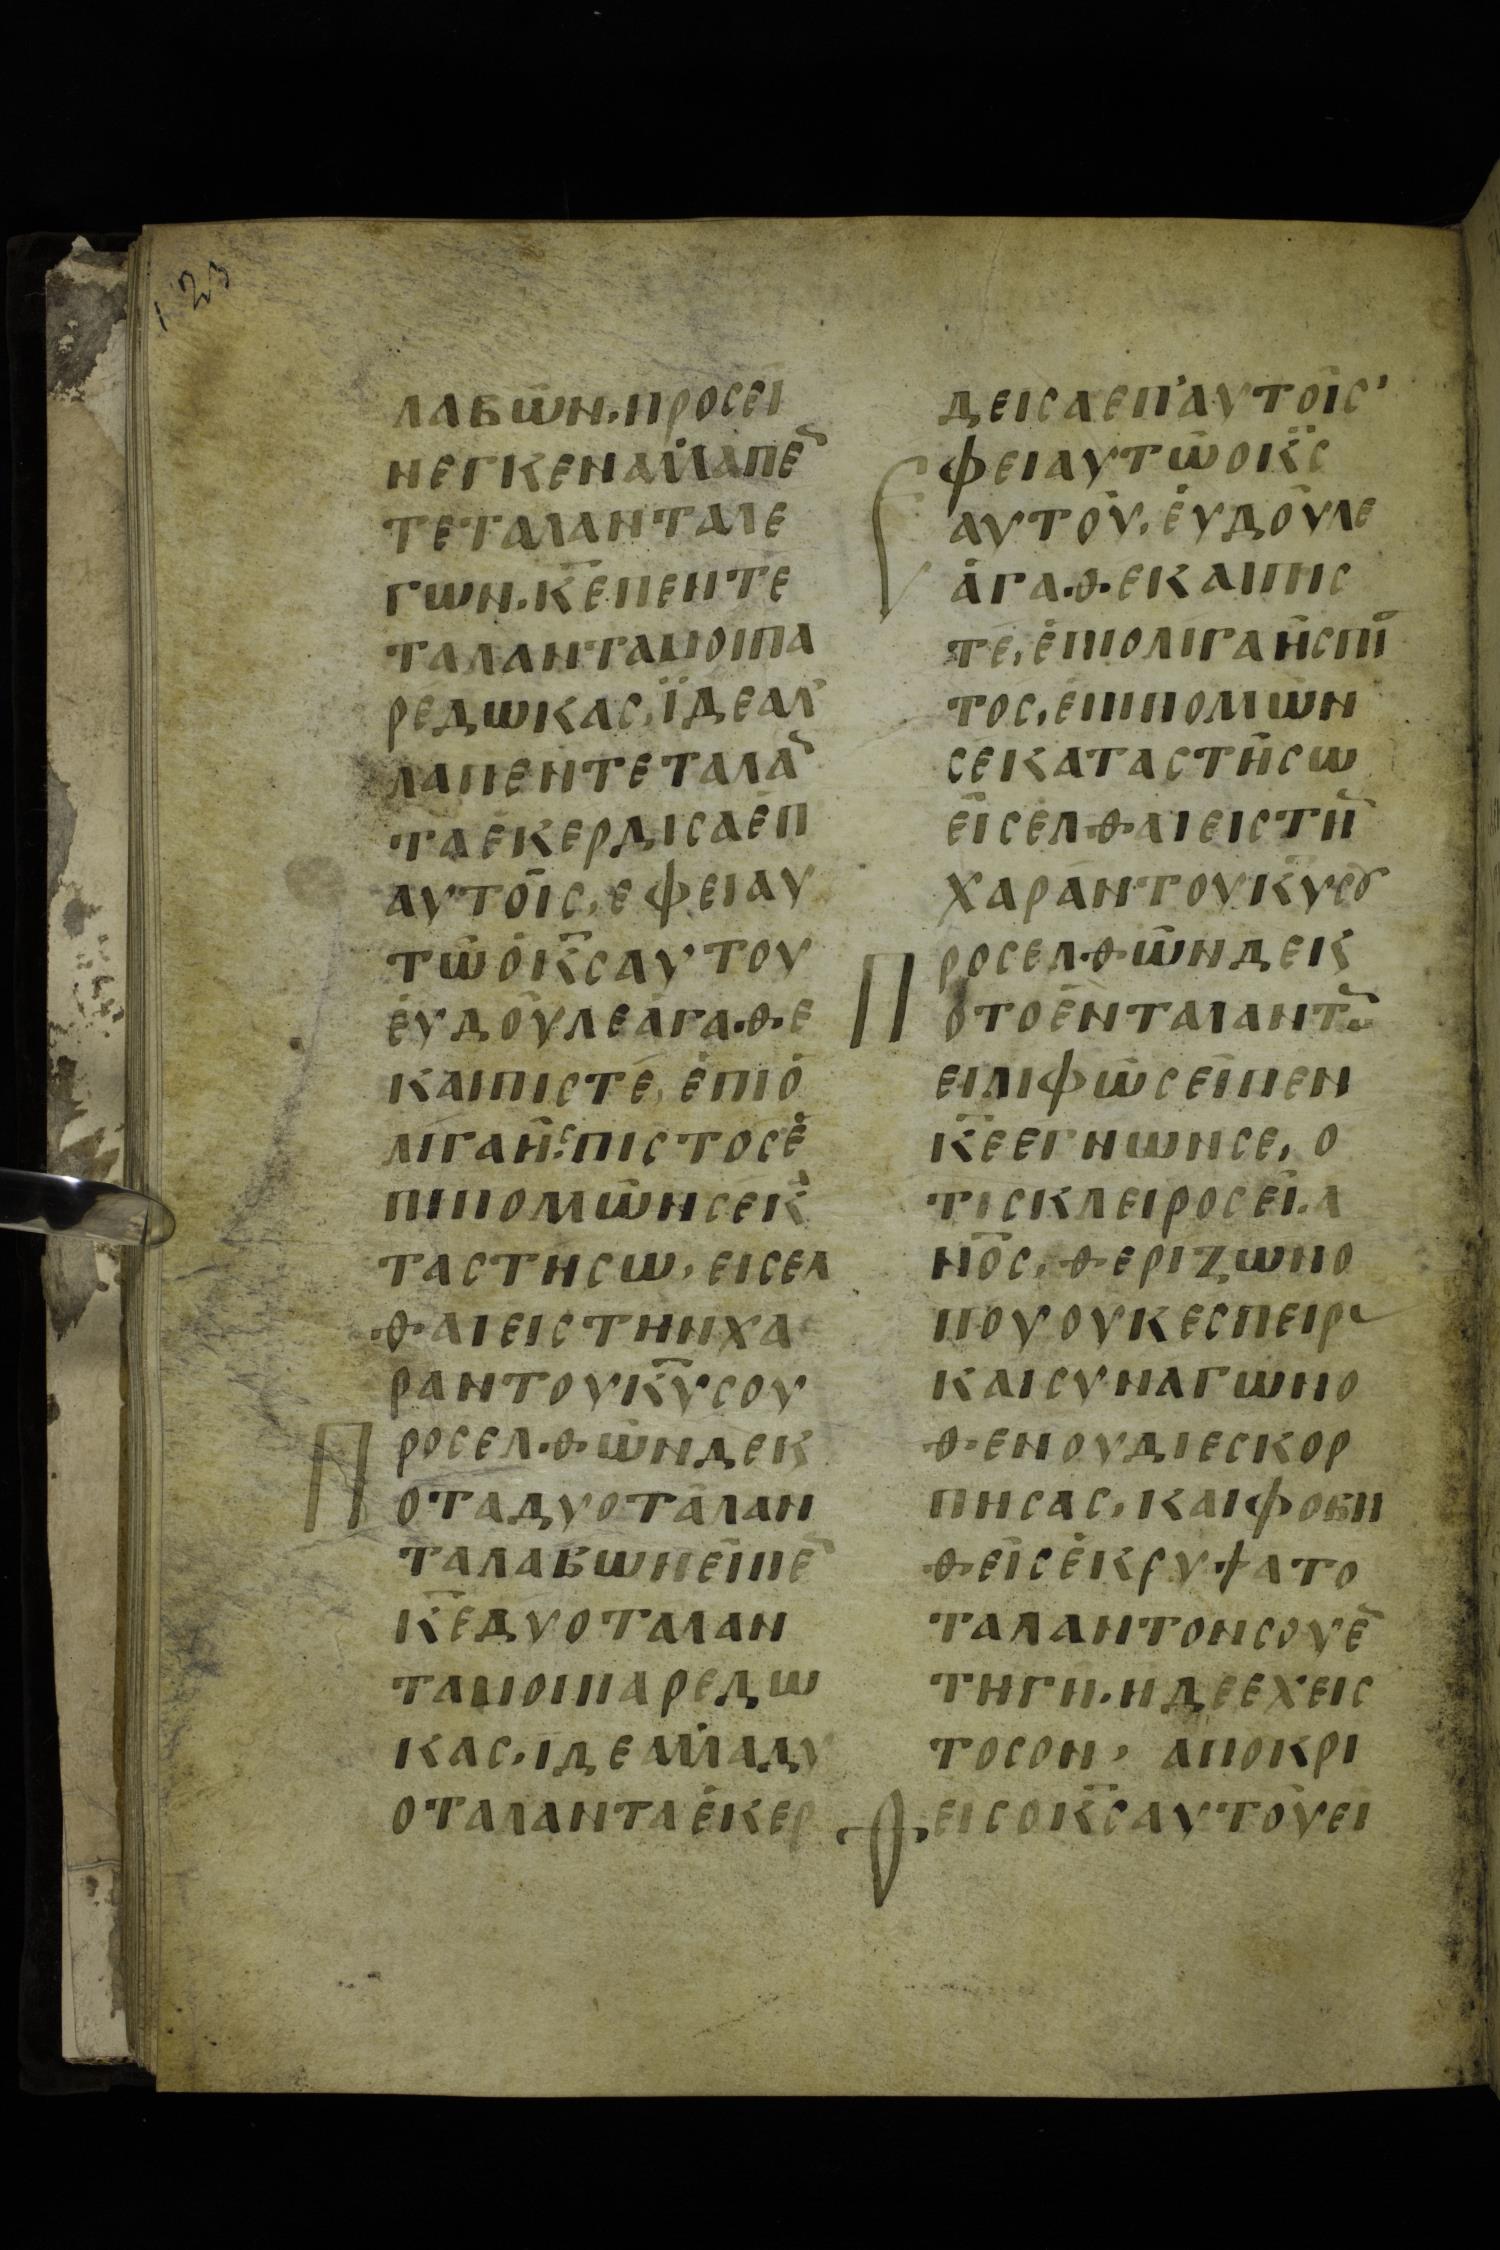 123
λαβῶν. προσεί
νεγκεν ἀλλαπε̄
τεταλανταλε
γων. κ̅ε πεντε
ταλανταμοιπα
ρεδωκας, ἴδεαλ
λαπεντεταλᾱ
ταἐκερδισαἐπ
αυτοῖς, εφειαυ
τῶὁκ̅ςαυτου
ἐυδοῦλεἀγαθε
καιπιστέ, ἐπιὀ
λιγαῆςπιστοσἐ
πιπομῶνσεκ
ταστησω, εισελ
θαιειςτηνχα
ραντουκ̅υσου
Προσελθῶνδεκ
οταδυοτάλαν
ταλαβωνεῖπε̄
κ̅εδυοταλαν
ταμοιπαρεδω
κας, ἰδεαλλαδυ
οταλανταἐκερ
δεισαεπ'αυτοῖς'
Εφειαυτῶοκ̅ς
αυτοῦ, ἐυδοῦλε
ἀγαθεκαιπης
τέ, ἐπιολίγαῆσπι
τος, επιπομῶν
σεκαταστήσω
εἰσέλθαιειςτη̄
χαράντουκ̅υσȣ
Προσελθῶνδεκ
οτοἔνταλαντω̄
ειλιφῶςεῖπεν
κ̅εεγνωνσε, ο
τισκλειροσεῖ.α
ν̅ος, θεριζωνο
πουουκεσπειρα
καισυναγωνο
θενουδιεσκορ
πησας, καιφοβη
θεῖσἐκρυψατο
ταλαντονσουε̄
τηγῆ. ηδεεχεις
τοσον, αποκρι
Θεισοκ̅ςαυτοῦει